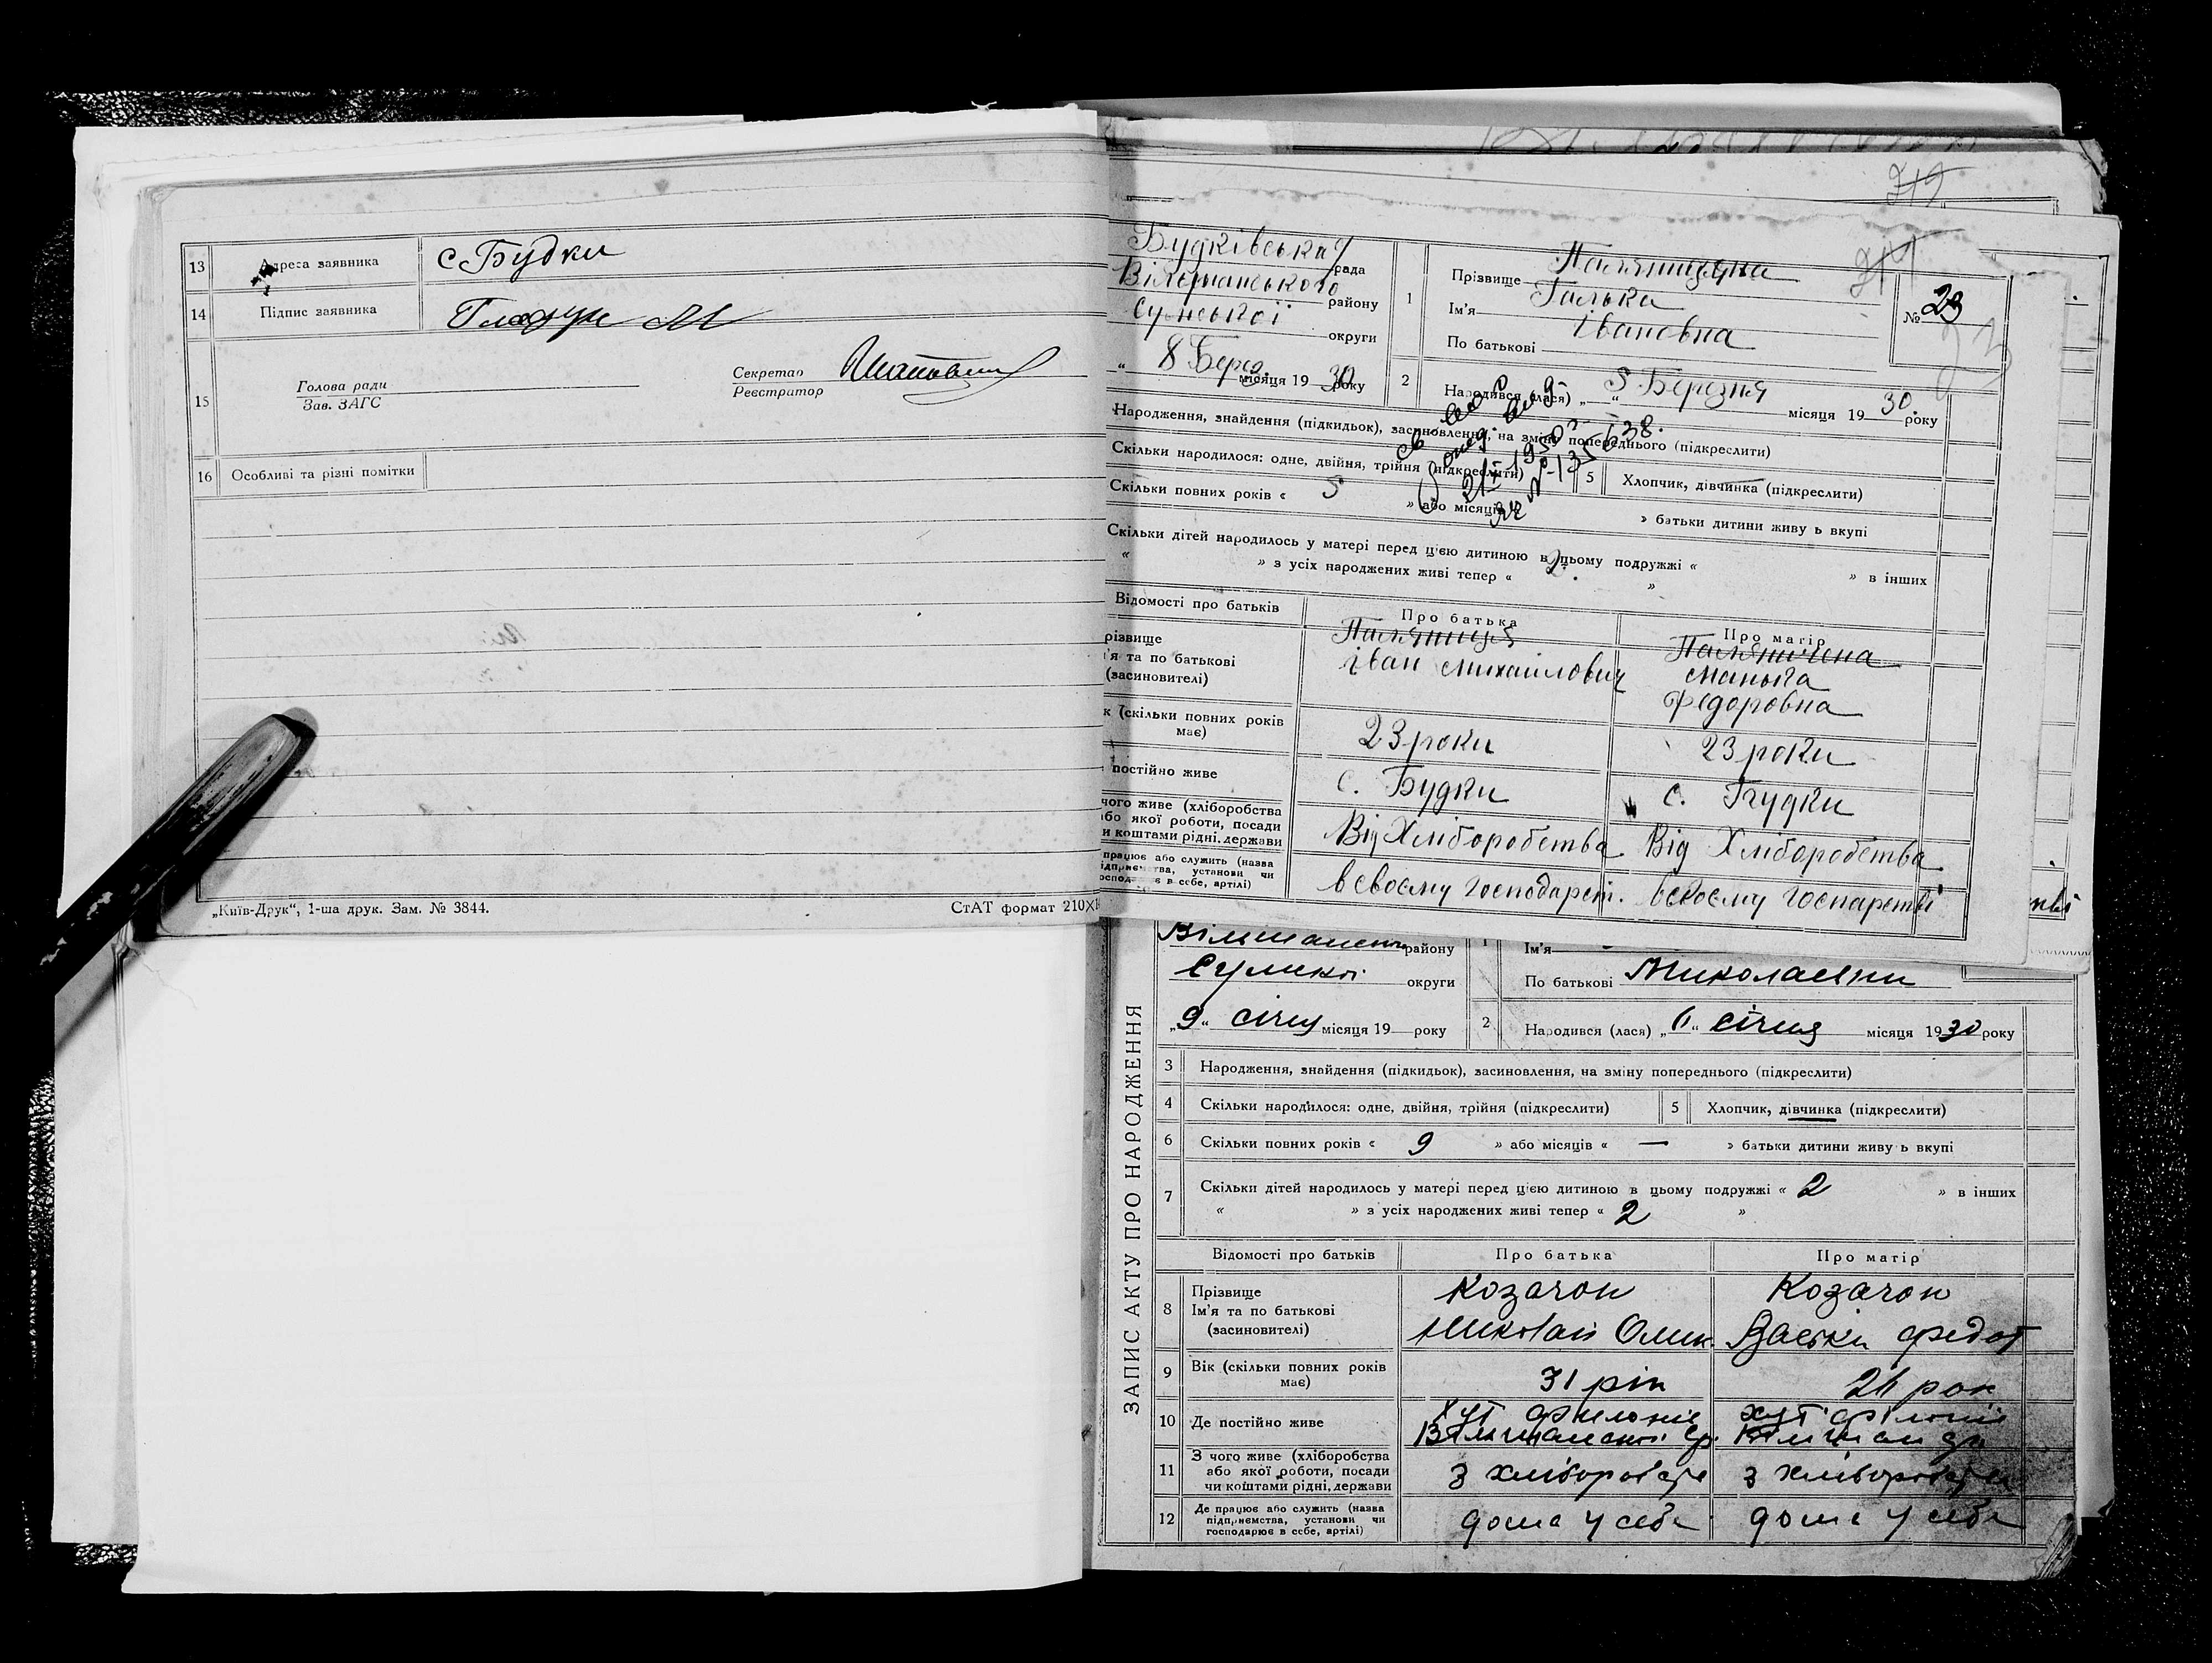 13 Адреса заявника с Будки
14 Підпис заявника
15 Голова ради
Зав. ЗАГС
Секретар
Реєстратор
16 Особливі та різні помітки
„Київ-Друк“, 1-ша друк. Зам. № 3844.
СтАТ формат 210×
Будківська рада
Вільшанського району
Сумської округи
„ 8 Берез. місяця 1930 року
1 Прізвище Паляницина
Ім'я Галька
По батькові Івановна
№ 23
2 Народився (лася) „ 5 „ Березня місяця 1930. року
Народження, знайдення (підкидьок), засиновлення, на зміну попереднього (підкреслити)
Скільки народилося: одне, двійня, трійня (підкреслити)
5 Хлопчик, дівчинка (підкреслити)
Скільки повних років « 5 » або місяців
» батьки дитини живу ь вкупі
Скільки дітей народилось у матері перед цією дитиною в цьому подружжі « » в інших
« » з усіх народжених живі тепер « 2. »
Відомості про батьків
Про батька
Про матір
різвище
'я та по батькові
(засиновителі)
Паляниця
Іван Михайлович
Паляничена
Манька
Федоровна
к (скільки повних років
має)
23 роки
23 роки
постійно живе
с. Будки
с. Будки
чого живе (хліборобства
або якої роботи, посади
и коштами рідні, держави
Від Хліборобства
Від Хліборобства
працює або служить (назва
ідприємства, установи чи
осподарює в себе, артілі)
в своєму господарст.
в своєму госпарстві
району
округи
„ 9 “ січня місяця 19 року
Ім'я
По батькові Миколаевни
2 Народився (лася) „ 6 “ січня місяця 1930 року
ЗАПИС АКТУ ПРО НАРОДЖЕННЯ
3 Народження, знайдення (підкидьок), засиновлення, на зміну попереднього (підкреслити)
4 Скільки народилося: одне, двійня, трійня (підкреслити)
5 Хлопчик, дівчинка (підкреслити)
6 Скільки повних років « 9 » або місяців « — » батьки дитини живу ь вкупі
7 Скільки дітей народилось у матері перед цією дитиною в цьому подружжі « 2 » в інших
« » з усіх народжених живі тепер « 2 »
Відомості про батьків
Про батька
Про матір
8 Прізвище
Ім'я та по батькові
(засиновителі)
Козачон
Николай Олик.
Козачон
Васьки Федот
9 Вік (скільки повних років
має)
31 рік
26 рок
10 Де постійно живе
11 З чого живе (хліборобства
або якої роботи, посади
чи коштами рідні, держави
з хліборобства
з хліборобства
12 Де працює або служить (назва
підприємства, установи чи
господарює в себе, артілі)
дома у себе
дома у себе